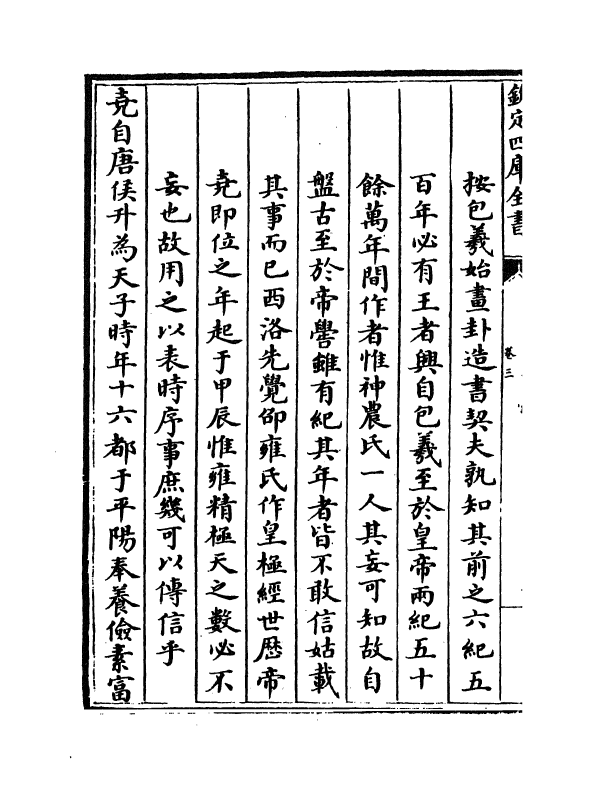 欽定四庫全書
卷三
按包羲始畫卦造書契夫孰知其前之六紀五
百年必有王者興自包羲至於皇帝兩紀五十
餘萬年間作者惟神農氏一人其妄可知故自
盤古至於帝嚳雖有紀其年者皆不敢信姑載
其事而已西洛先覺邵雍氏作皇極經世厯帝
堯即位之年起于甲辰惟雍精極天之數必不
妄也故用之以表時序事庶幾可以傳信乎
堯自唐侯升為天子時年十六都于平陽奉養儉素富